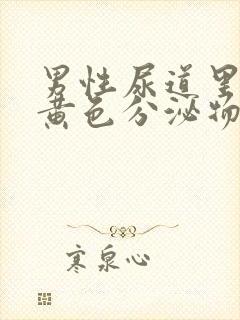 男性尿道里
黄色分泌物
寒泉心